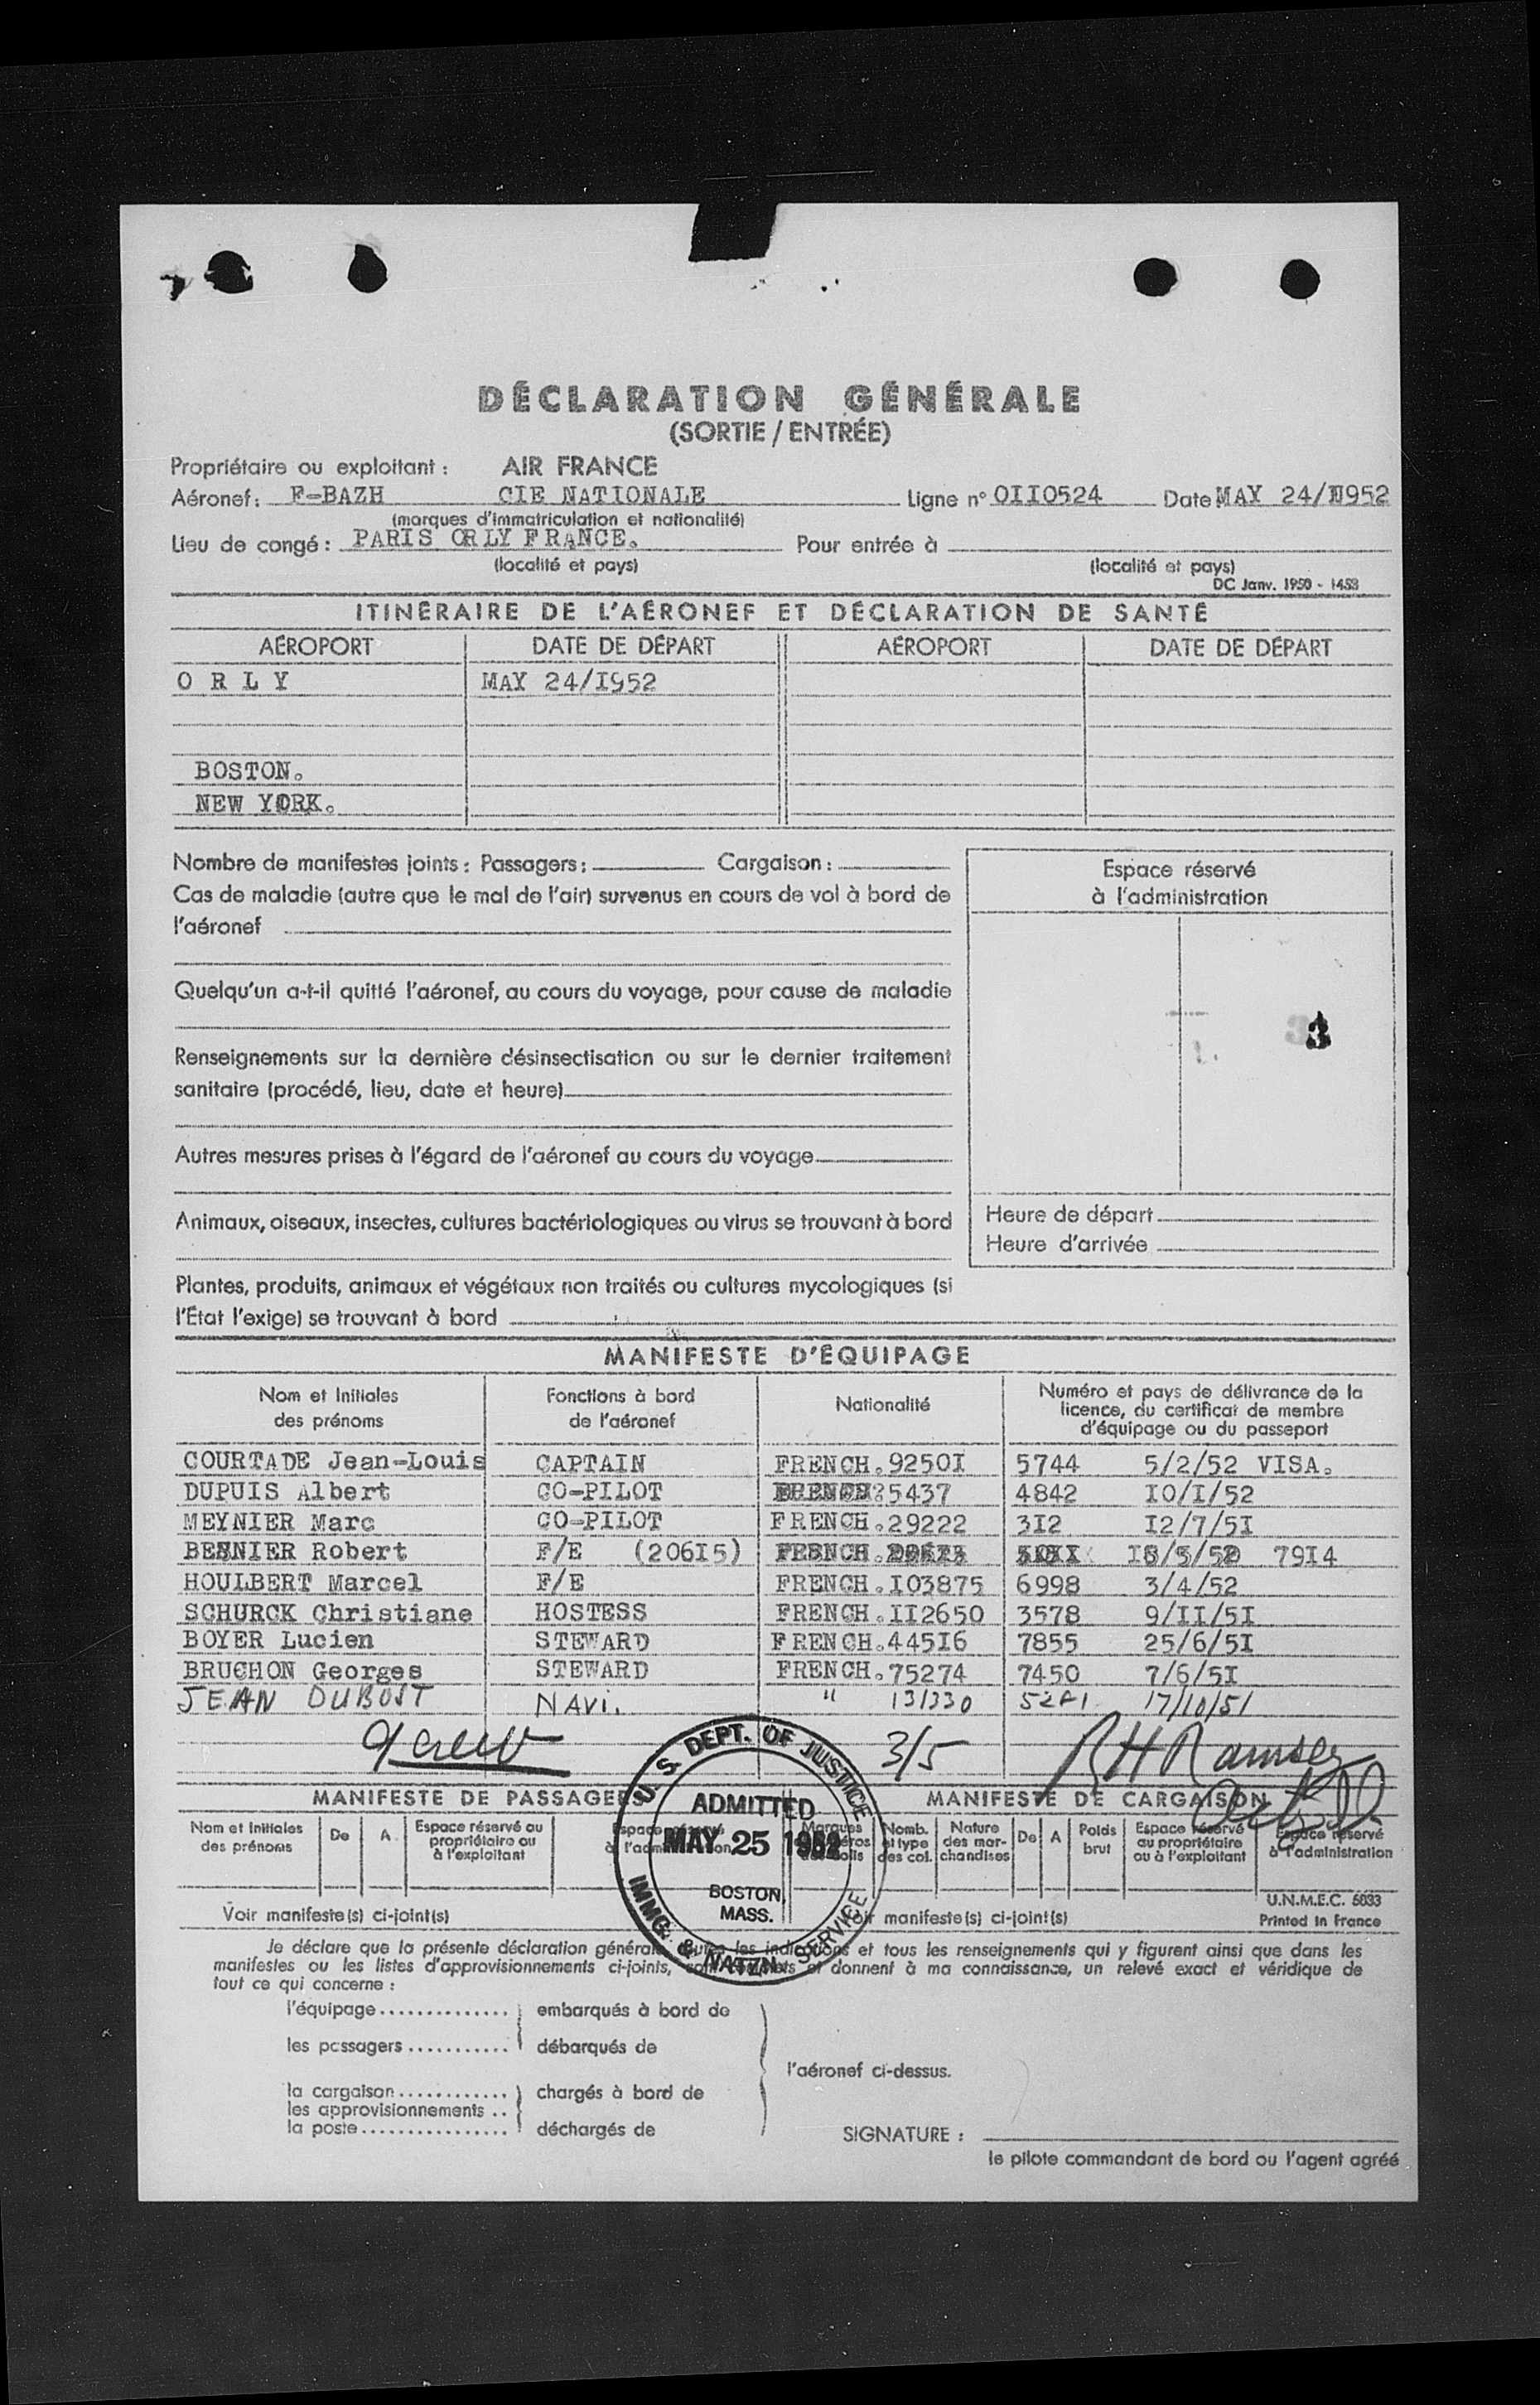 DÉCLARATION GÉNÉRALE
(SORTIE / ENTRÉE)
Propriétaire ou exploitant : AIR FRANCE
Aéronef : F-BAZH CIE NATIONALE Ligne n° OIIO524 Date MAY 24/I952
(marques d'immatriculation et nationalité)
Lieu de congé : PARIS ORLY FRANCE. Pour entrée à
(localité et pays) (localité et pays)
DC Janv. 1950 - 1453
ITINÉRAIRE DE L'AÉRONEF ET DÉCLARATION DE SANTÉ
AÉROPORT DATE DE DÉPART AÉROPORT DATE DE DÉPART
O R L Y MAY 24/I952
BOSTON.
NEW YORK.
Nombre de manifestes joints : Passagers : Cargaison :
Cas de maladie (autre que le mal de l'air) survenus en cours de vol à bord de
l'aéronef
Espace réservé
à l'administration
Quelqu'un a-t-il quitté l'aéronef, au cours du voyage, pour cause de maladie
3
Renseignements sur la dernière désinsectisation ou sur le dernier traitement
sanitaire (procédé, lieu, date et heure)
Autres mesures prises à l'égard de l'aéronef au cours du voyage
Animaux, oiseaux, insectes, cultures bactériologiques ou virus se trouvant à bord
Heure de départ
Heure d'arrivée
Plantes, produits, animaux et végétaux non traités ou cultures mycologiques (si
l'État l'exige) se trouvant à bord
MANIFESTE D'ÉQUIPAGE
Nom et Initiales des prénoms
Fonctions à bord de l'aéronef
Nationalité
Numéro et pays de délivrance de la licence, du certificat de membre d'équipage ou du passeport
COURTADE Jean-Louis CAPTAIN FRENCH.9250I 5744 5/2/52 VISA.
DUPUIS Albert CO-PILOT 5437 4842 IO/I/52
MEYNIER Marc CO-PILOT FRENCH.29222 3I2 I2/7/5I
BESNIER Robert F/E (206I5) FRENCH. 79I4
HOULBERT Marcel F/E FRENCH.IO3875 6998 3/4/52
SCHURCK Christiane HOSTESS FRENCH.II2650 3578 9/II/5I
BOYER Lucien STEWARD FRENCH.445I6 7855 25/6/5I
BRUCHON Georges STEWARD FRENCH.75274 7450 7/6/5I
JEAN DUBOST NAVI. " 131330 17/10/51
9 crew 3/5 RH Ramsey
MANIFESTE DE PASSAGERS MANIFESTE DE CARGAISON
Nom et Initiales des prénoms
De
A
Espace réservé au propriétaire ou à l'exploitant
Nomb. et type des col.
Nature des marchandises
De
A
Poids brut
Espace réservé au propriétaire ou à l'exploitant
Espace réservé à l'administration
U. S. DEPT. OF JUSTICE
ADMITTED
MAY 25 1952
BOSTON,
MASS.
IMMG. & NATZN. SERVICE
U.N.M.E.C. 6033
Voir manifeste(s) ci-joint(s) Voir manifeste(s) ci-joint(s) Printed in France
Je déclare que la présente déclaration générale, toutes les indications et tous les renseignements qui y figurent ainsi que dans les
manifestes ou les listes d'approvisionnements ci-joints, sont complets et donnent à ma connaissance, un relevé exact et véridique de
tout ce qui concerne :
l'équipage.............. embarqués à bord de
les passagers ........... débarqués de
l'aéronef ci-dessus.
la cargaison............ chargés à bord de
les approvisionnements ..
la poste................ déchargés de
SIGNATURE :
le pilote commandant de bord ou l'agent agréé